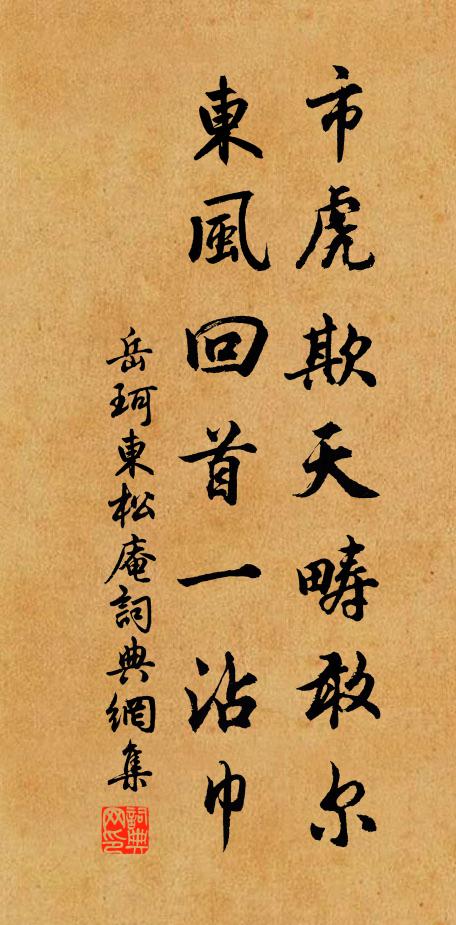 市虎欺天畴敢尔
東風回首一沾巾
岳珂東松庵詞典網集
詞典网印